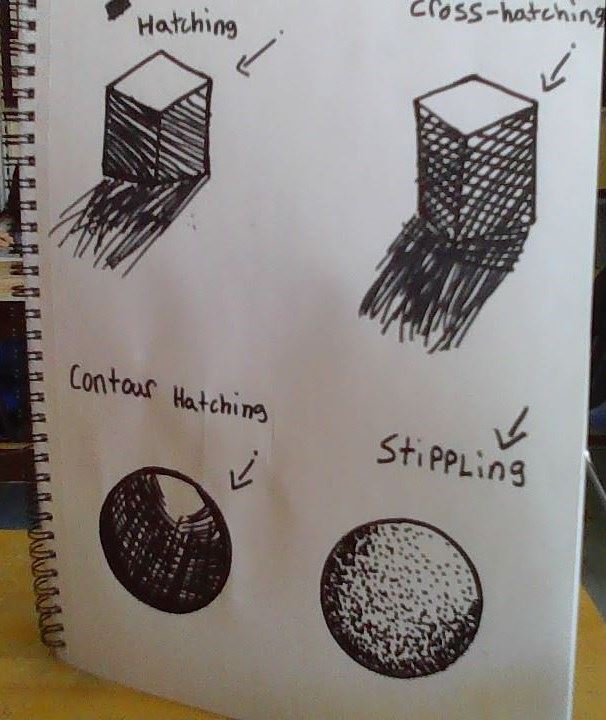 Hatching
Cross-hatching
Contour Hatching
Stippling